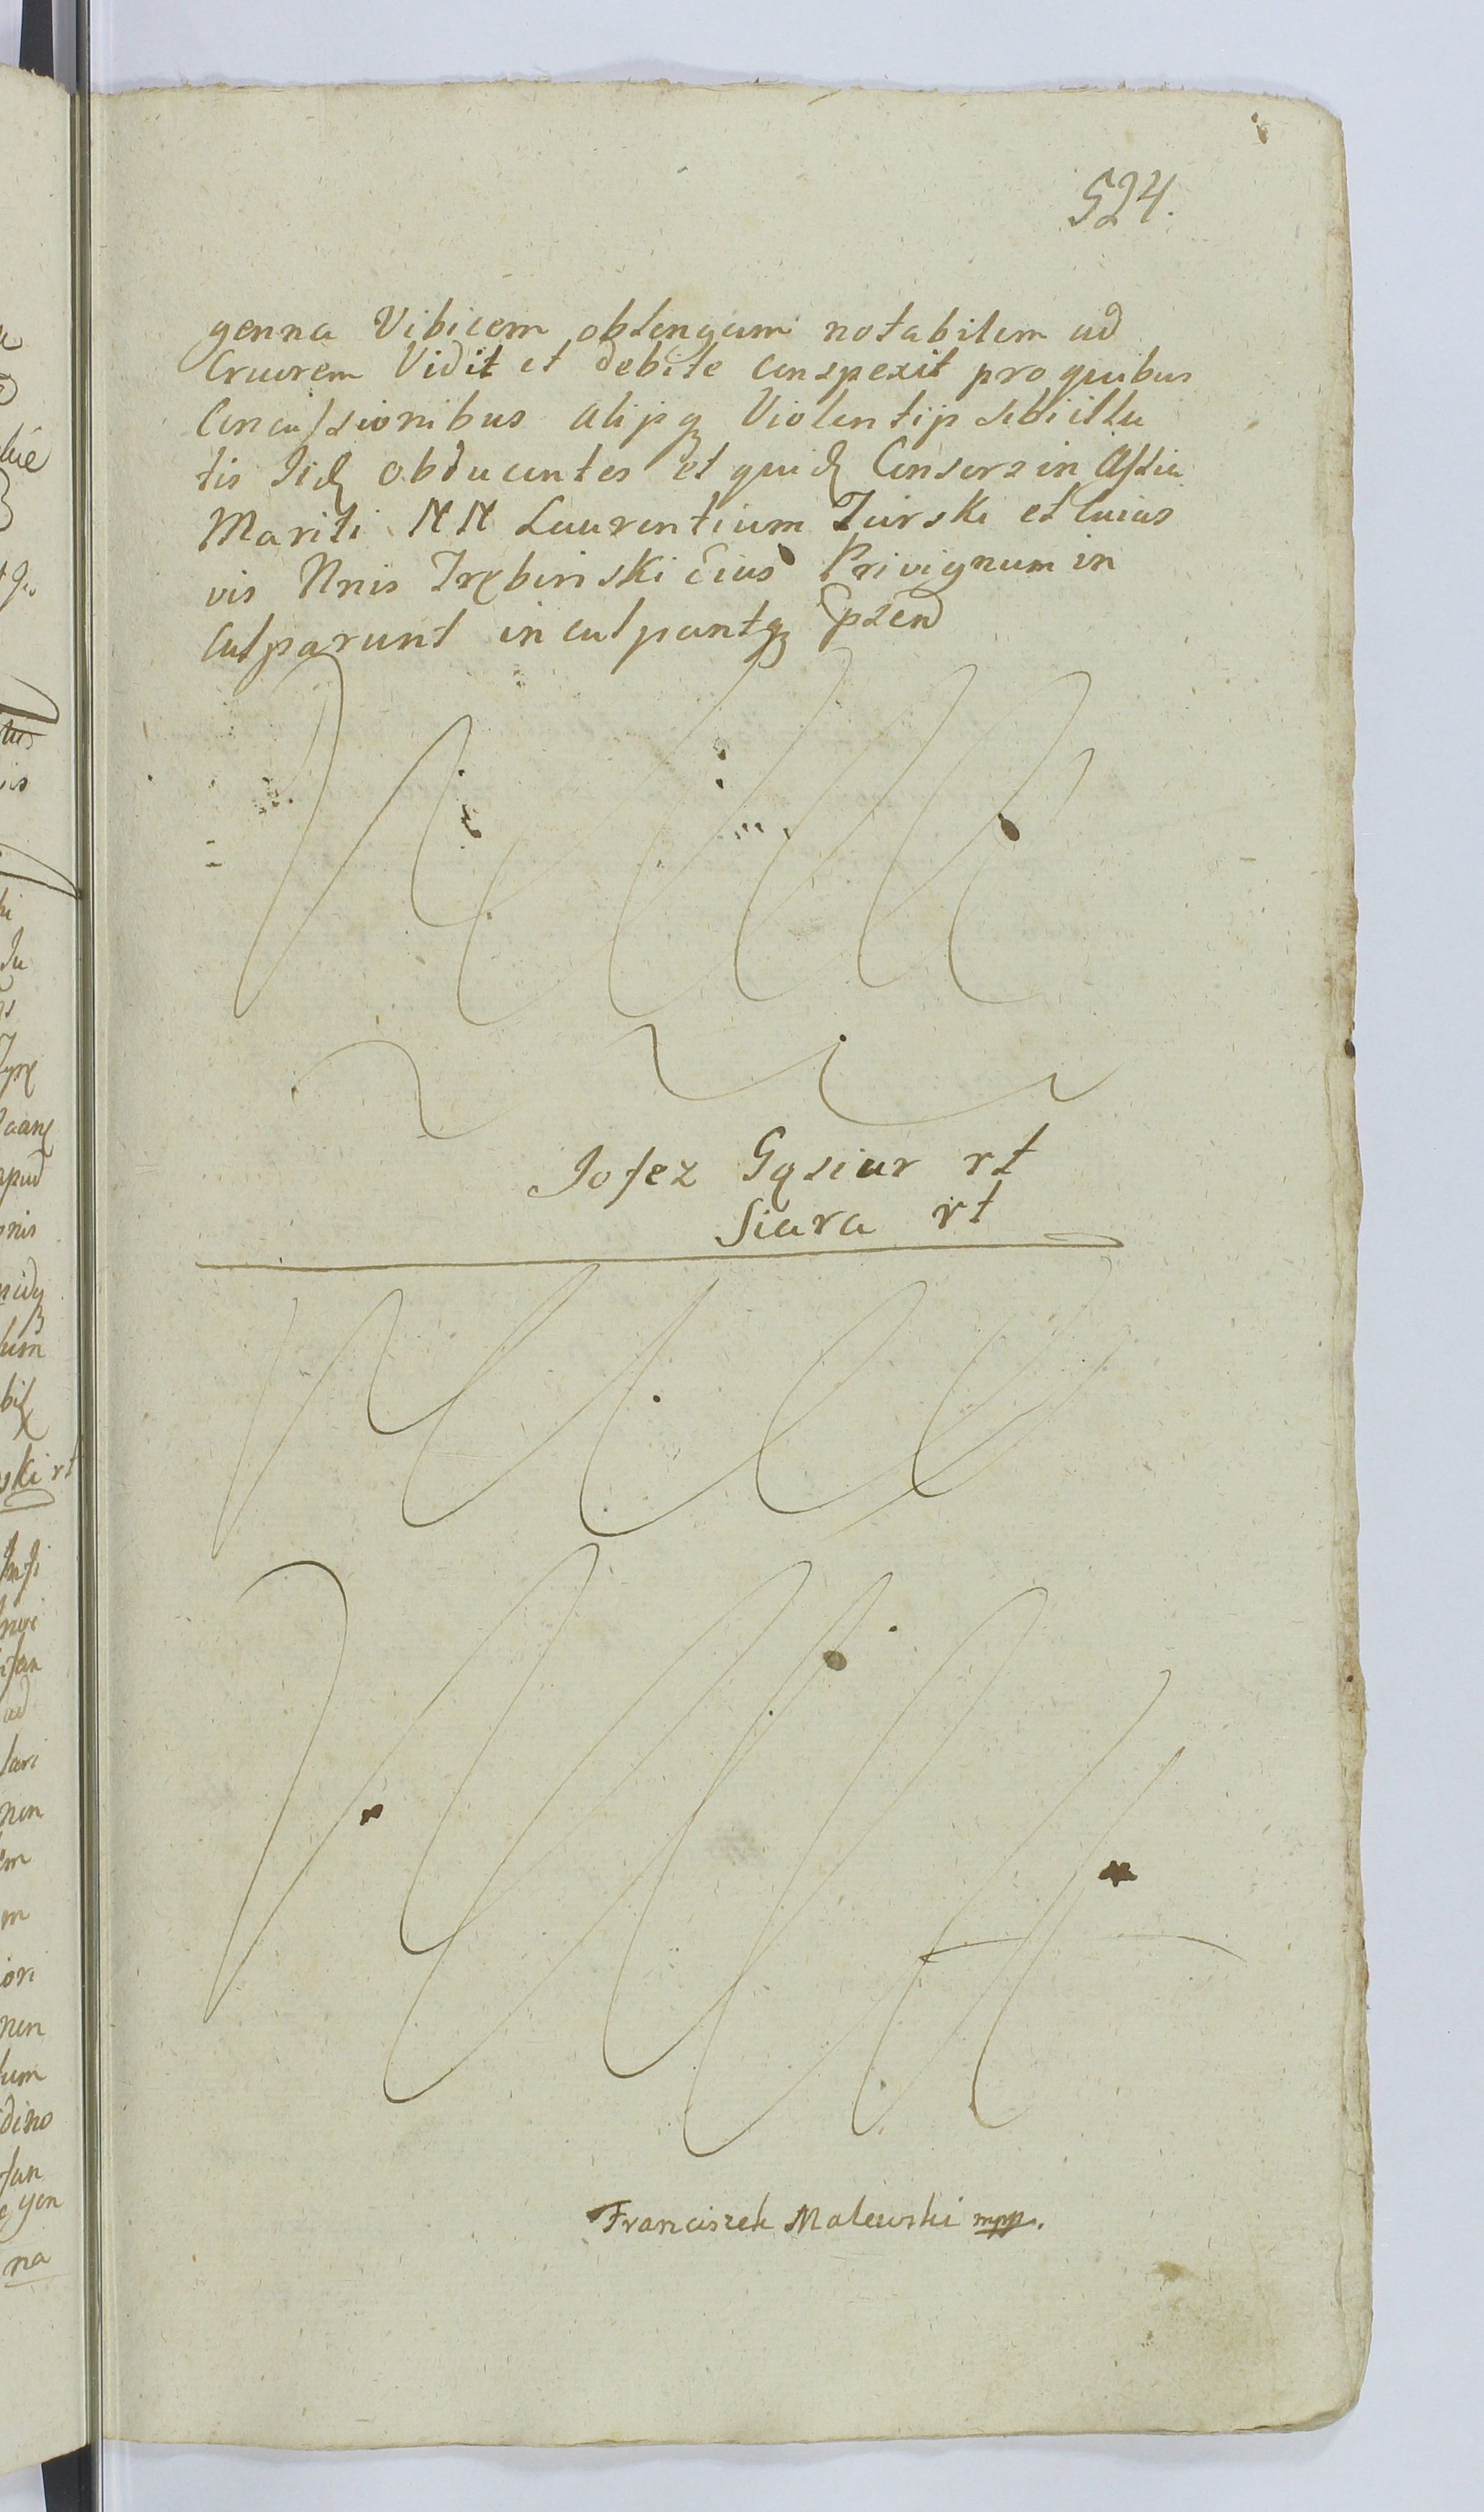 524.
genna Vibicem oblongam notabilem ad
Cruorem Vidit et debite conspexit pro quibus
Concussionibus alijsq Violentijs sibi illa
tis Iid obducentes et quid Consors in Assia
Mariti NN Laurentium Turski et cuius
vis Nnis Trębinski eius Privignum in
culparunt inculpantq
Josez Gąsiur rt
Siara rt
Franciszek Malewski mpp.